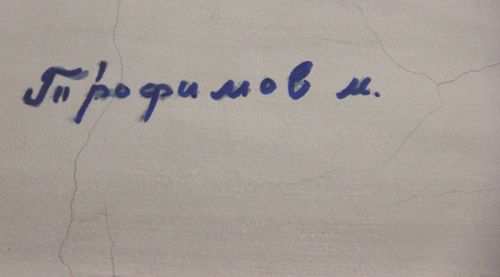 Трофимов м.